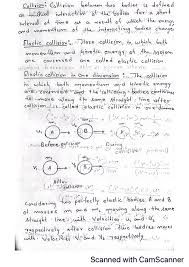 Collision: Collision between two bodies is defined
as mutual interaction of the bodies for a short
interval of time as a result of which the energy
and momentum of the interacting bodies change.
Elastic collision: Those collision, in which both
momentum and kinetic energy of the system
are conserved are called elastic collision.
Elastic collision in one dimension: The collision
in which both momentum and kinetic energy
are conserved and the colliding bodies continue
to move along the same straight line after
collision is called elastic collision in one dimension
A B A B
Before collision
After
collision
Considering two perfectly elastic bodies A and B
of masses m1 and m2 moving along the same
straight line with velocities u1 and u2
respectively, after collision two bodies moves
with velocities v1 and v2 respectively
Scanned with CamScanner